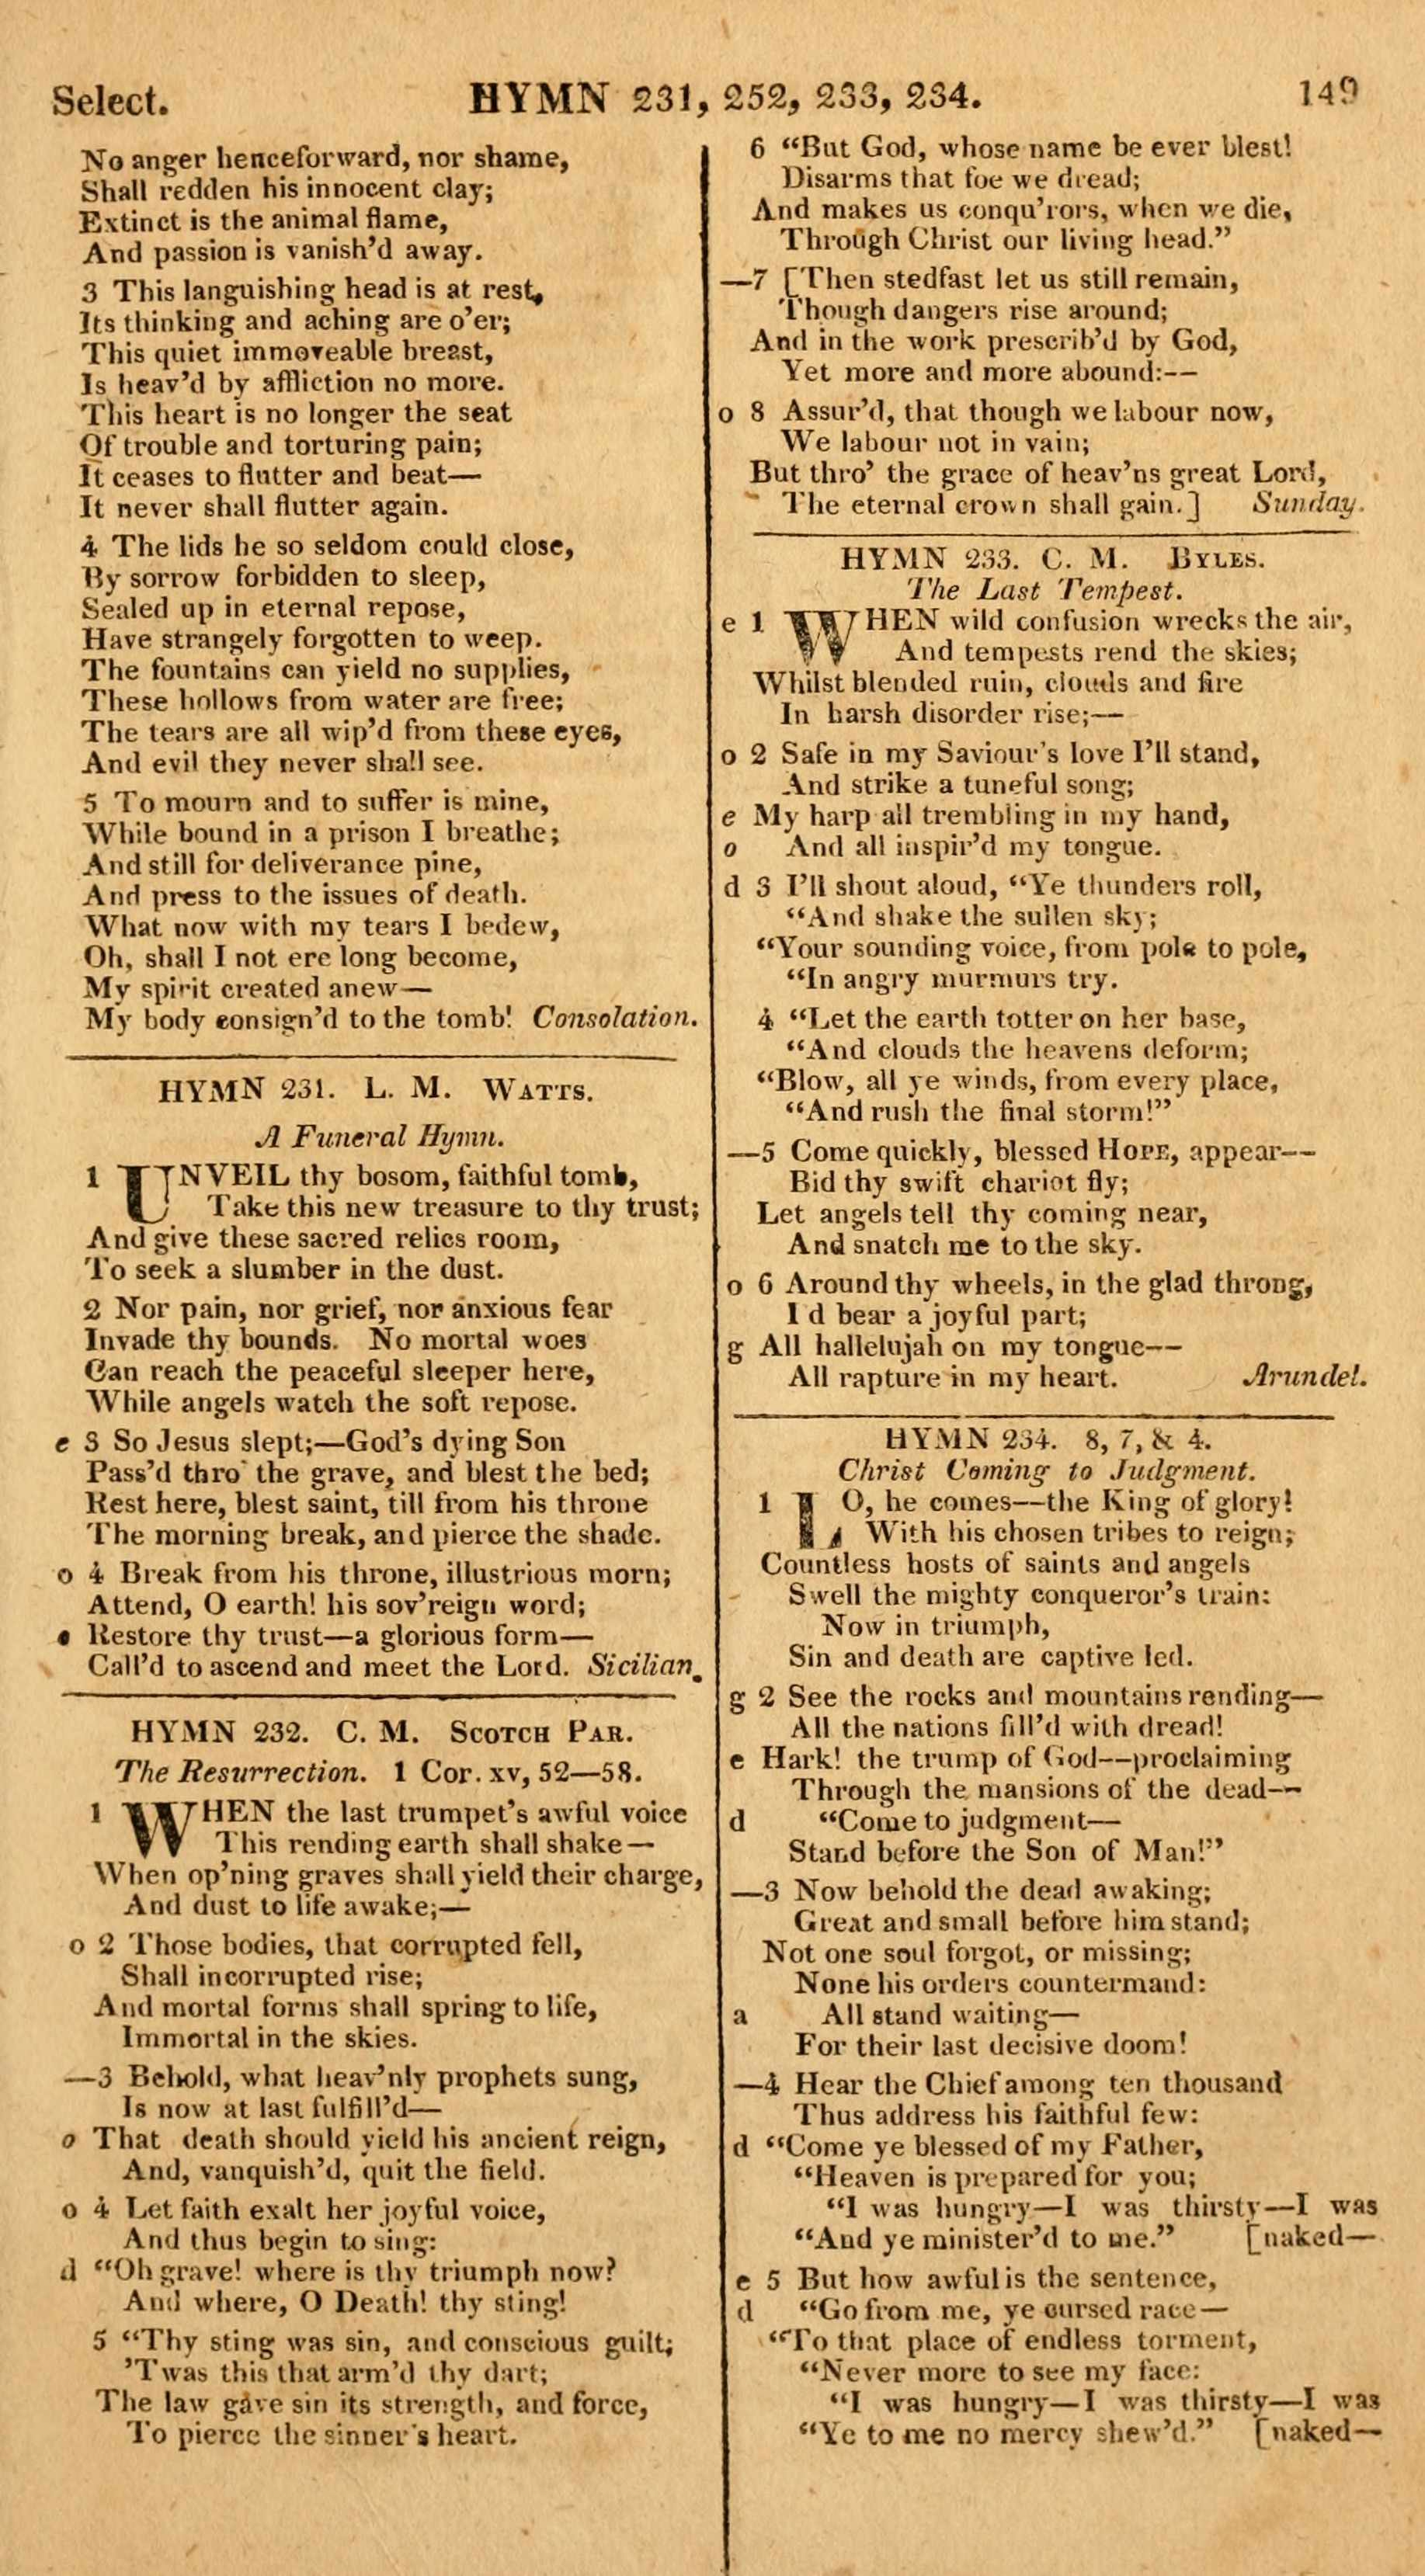 Select.
HYMN 231, 252, 233, 234.
149
No anger henceforward, nor shame,
Shall redden his innocent clay;
Extinct is the animal flame,
And passion is vanish'd away.
3 This languishing head is at rest,
Its thinking and aching are o'er;
This quiet immoveable breast,
Is heav'd by affliction no more.
This heart is no longer the seat
Of trouble and torturing pain;
It ceases to flutter and beat—
It never shall flutter again.
4 The lids he so seldom could close,
By sorrow forbidden to sleep,
Sealed up in eternal repose,
Have strangely forgotten to weep.
The fountains can yield no supplies,
These hollows from water are free;
The tears are all wip'd from these eyes,
And evil they never shall see.
5 To mourn and to suffer is mine,
While bound in a prison I breathe;
And still for deliverance pine,
And press to the issues of death.
What now with my tears I bedew,
Oh, shall I not ere long become,
My spirit created anew—
My body consign'd to the tomb! Consolation.
HYMN 231. L. M. WATTS.
A Funeral Hymn.
1 UNVEIL thy bosom, faithful tomb,
Take this new treasure to thy trust;
And give these sacred relics room,
To seek a slumber in the dust.
2 Nor pain, nor grief, nor anxious fear
Invade thy bounds. No mortal woes
Can reach the peaceful sleeper here,
While angels watch the soft repose.
e 3 So Jesus slept;—God's dying Son
Pass'd thro' the grave, and blest the bed;
Rest here, blest saint, till from his throne
The morning break, and pierce the shade.
o 4 Break from his throne, illustrious morn;
Attend, O earth! his sov'reign word;
Restore thy trust—a glorious form—
Call'd to ascend and meet the Lord. Sicilian.
HYMN 232. C. M. SCOTCH PAR.
The Resurrection. 1 Cor. xv, 52—58.
1 WHEN the last trumpet's awful voice
This rending earth shall shake—
When op'ning graves shall yield their charge,
And dust to life awake;—
o 2 Those bodies, that corrupted fell,
Shall incorrupted rise;
And mortal forms shall spring to life,
Immortal in the skies.
—3 Behold, what heav'nly prophets sung,
Is now at last fulfill'd—
o That death should yield his ancient reign,
And, vanquish'd, quit the field.
o 4 Let faith exalt her joyful voice,
And thus begin to sing:
d "Oh grave! where is thy triumph now?
And where, O Death! thy sting!
5 "Thy sting was sin, and conscious guilt;
'Twas this that arm'd thy dart;
The law gave sin its strength, and force,
To pierce the sinner's heart.
6 "But God, whose name be ever blest!
Disarms that foe we dread;
And makes us conqu'rors, when we die,
Through Christ our living head."
—7 [Then stedfast let us still remain,
Though dangers rise around;
And in the work prescrib'd by God,
Yet more and more abound:—
o 8 Assur'd, that though we labour now,
We labour not in vain;
But thro' the grace of heav'ns great Lord,
The eternal crown shall gain.] Sunday.
HYMN 233. C. M. BYLES.
The Last Tempest.
e 1 WHEN wild confusion wrecks the air,
And tempests rend the skies;
Whilst blended ruin, clouds and fire
In harsh disorder rise;—
o 2 Safe in my Saviour's love I'll stand,
And strike a tuneful song;
e My harp all trembling in my hand,
o And all inspir'd my tongue.
d 3 I'll shout aloud, "Ye thunders roll,
"And shake the sullen sky;
"Your sounding voice, from pole to pole,
"In angry murmurs try.
4 "Let the earth totter on her base,
"And clouds the heavens deform;
"Blow, all ye winds, from every place,
"And rush the final storm!"
—5 Come quickly, blessed HOPE, appear—
Bid thy swift chariot fly;
Let angels tell thy coming near,
And snatch me to the sky.
o 6 Around thy wheels, in the glad throng,
I'd bear a joyful part;
g All hallelujah on my tongue—
All rapture in my heart. Arundel.
HYMN 234. 8, 7, & 4.
Christ Coming to Judgment.
1 LO, he comes—the King of glory!
With his chosen tribes to reign;
Countless hosts of saints and angels
Swell the mighty conqueror's train:
Now in triumph,
Sin and death are captive led.
g 2 See the rocks and mountains rending—
All the nations fill'd with dread!
e Hark! the trump of God—proclaiming
Through the mansions of the dead—
d "Come to judgment—
Stand before the Son of Man!"
—3 Now behold the dead awaking;
Great and small before him stand;
Not one soul forgot, or missing;
None his orders countermand:
a All stand waiting—
For their last decisive doom!
—4 Hear the Chief among ten thousand
Thus address his faithful few:
d "Come ye blessed of my Father,
"Heaven is prepared for you;
"I was hungry—I was thirsty—I was
"And ye minister'd to me." [naked—
e 5 But how awful is the sentence,
d "Go from me, ye cursed race—
"To that place of endless torment,
"Never more to see my face:
"I was hungry—I was thirsty—I was
"Ye to me no mercy shew'd." [naked—